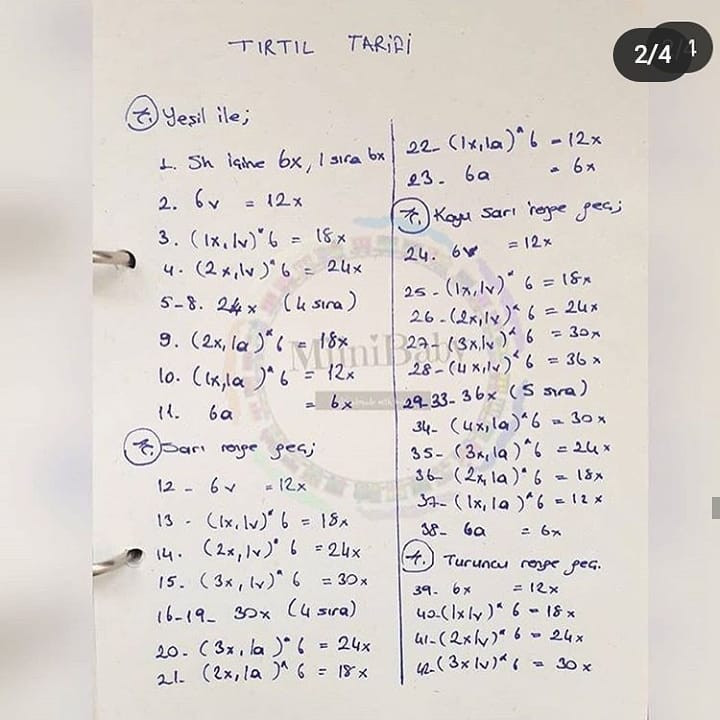 2/4
TIRTIL TARİFİ
Yeşil ile;
1. Sh içine 6x, 1 sıra 6x
2. 6v = 12x
3. (1x,1v)*6 = 18x
4. (2x,1v)*6 = 24x
5-8. 24x (4 sıra)
9. (2x,1a)*6 = 18x
10. (1x,1a)*6 = 12x
11. 6a = 6x
Sarı renge geç;
12 - 6v = 12x
13 - (1x,1v)*6 = 18x
14. (2x,1v)*6 = 24x
15. (3x,1v)*6 = 30x
16-19- 30x (4 sıra)
20- (3x,1a)*6 = 24x
21. (2x,1a)*6 = 18x
22- (1x,1a)*6 = 12x
23- 6a = 6x
Koyu sarı renge geç;
24. 6v = 12x
25- (1x,1v)*6 = 18x
26-(2x,1v)*6 = 24x
27-(3x,1v)*6 = 30x
28-(4x,1v)*6 = 36x
29-33- 36x (5 sıra)
34- (4x,1a)*6 = 30x
35- (3x,1a)*6 = 24x
36- (2x,1a)*6 = 18x
37- (1x,1a)*6 = 12x
38- 6a = 6x
Turuncu renge geç.
39. 6x = 12x
40-(1x1v)*6 = 18x
41-(2x1v)*6 = 24x
42-(3x1v)*6 = 30x
MiniBaby